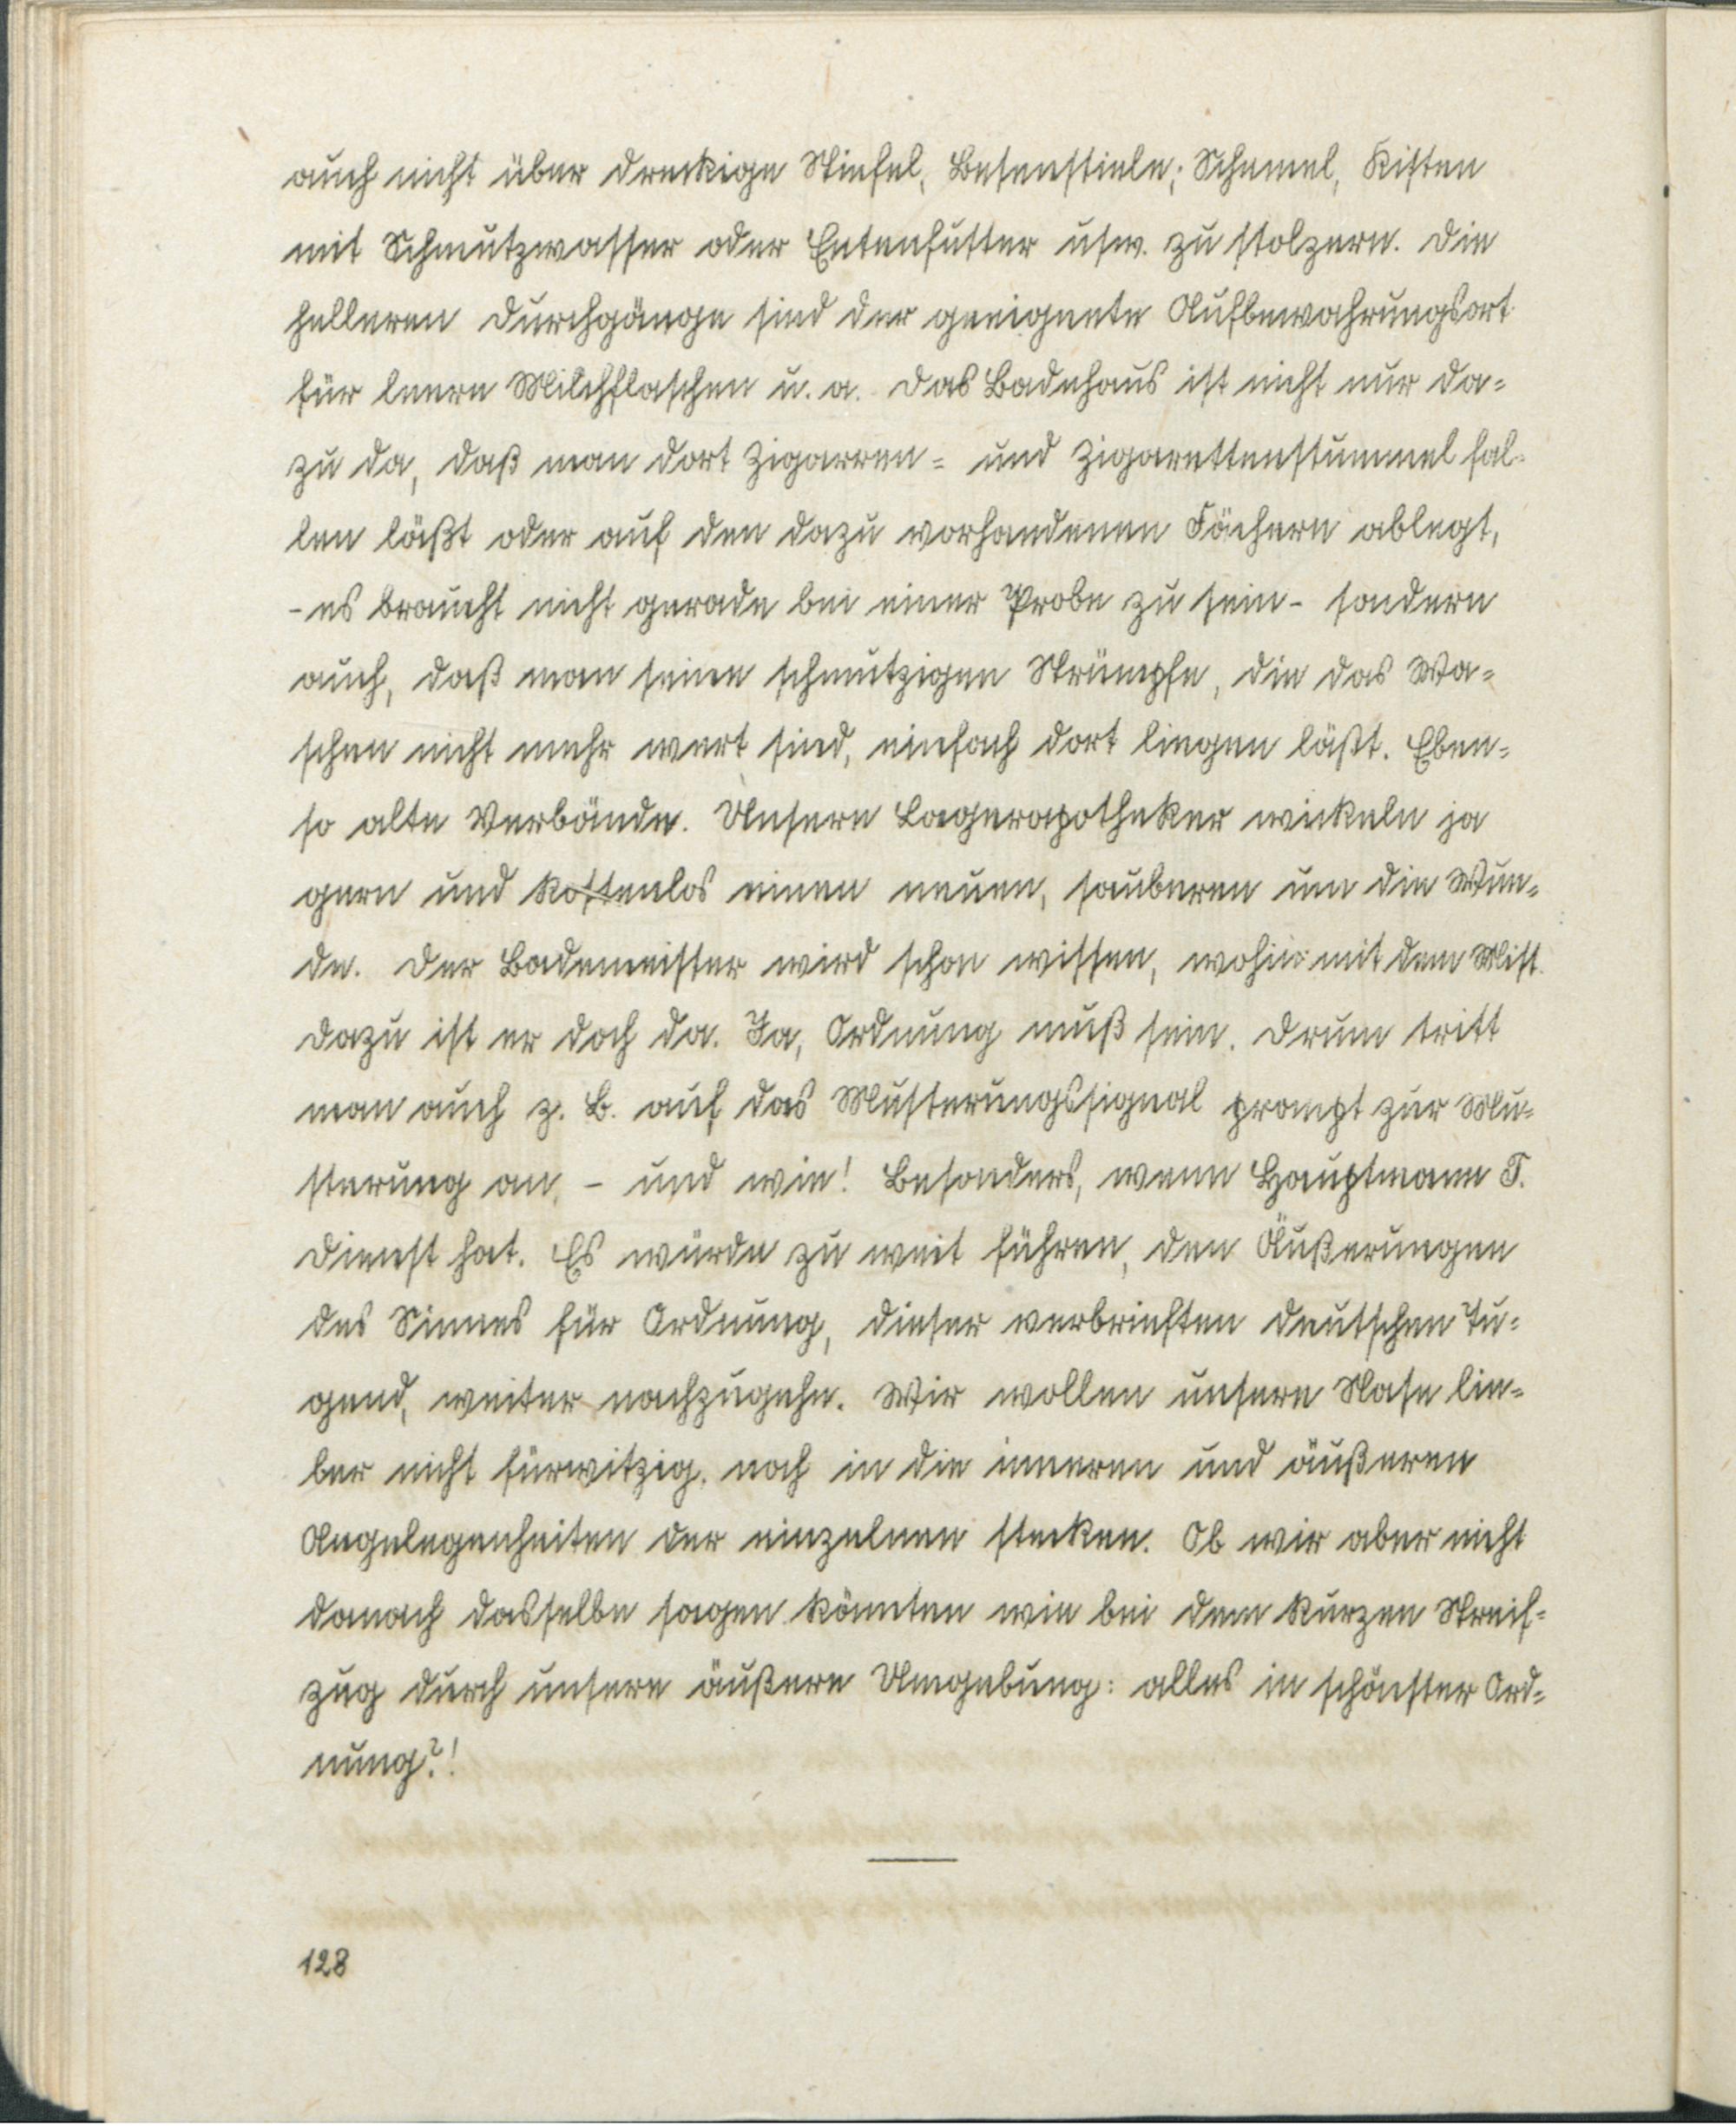 auch nicht über dreckige Stiefel, Besenstiele, Schemel, Kisten
mit Schmutzwasser oder Entenfutter usw. zu stolzern. Die
helleren Durchgänge sind der geeignete Aufbewahrungsort
für leere Milchflaschen u. a. Das Badehaus ist nicht nur da=
zu da, daß man dort Zigarren= und Zigarettenstummel fal=
len läßt oder auf den dazu vorhandenen Fächern ablegt,
- es braucht nicht gerade bei einer Probe zu sein - sondern
auch, daß man seine schmutzigen Strümpfe, die das Wa=
schen nicht mehr wert sind, einfach dort liegen läßt. Eben=
so alte Verbände. Unsere Lagerapotheker wickeln ja
gern und kostenlos einen neuen, sauberen um die Wun=
de. Der Bademeister wird schon wissen, wohin mit dem Mist.
Dazu ist er doch da. Ja, Ordnung muß sein. Drum tritt
man auch z. B. auf das Musterungssignal prompt zur Mu=
sterung an, - und wie! Besonders, wenn Hauptmann T.
Dienst hat. Es würde zu weit führen, den Äußerungen
des Sinnes für Ordnung, dieser verbrieften deutschen Tu=
gend, weiter nachzugehn. Wir wollen unsere Nase lie=
ber nicht fürwitzig, noch in die inneren und äußeren
Angelegenheiten der einzelnen stecken. Ob wir aber nicht
danach dasselbe sagen könnten wie bei dem kurzen Streif=
zug durch unsere äußere Umgebung: alles in schönster Ord=
nung?!
128